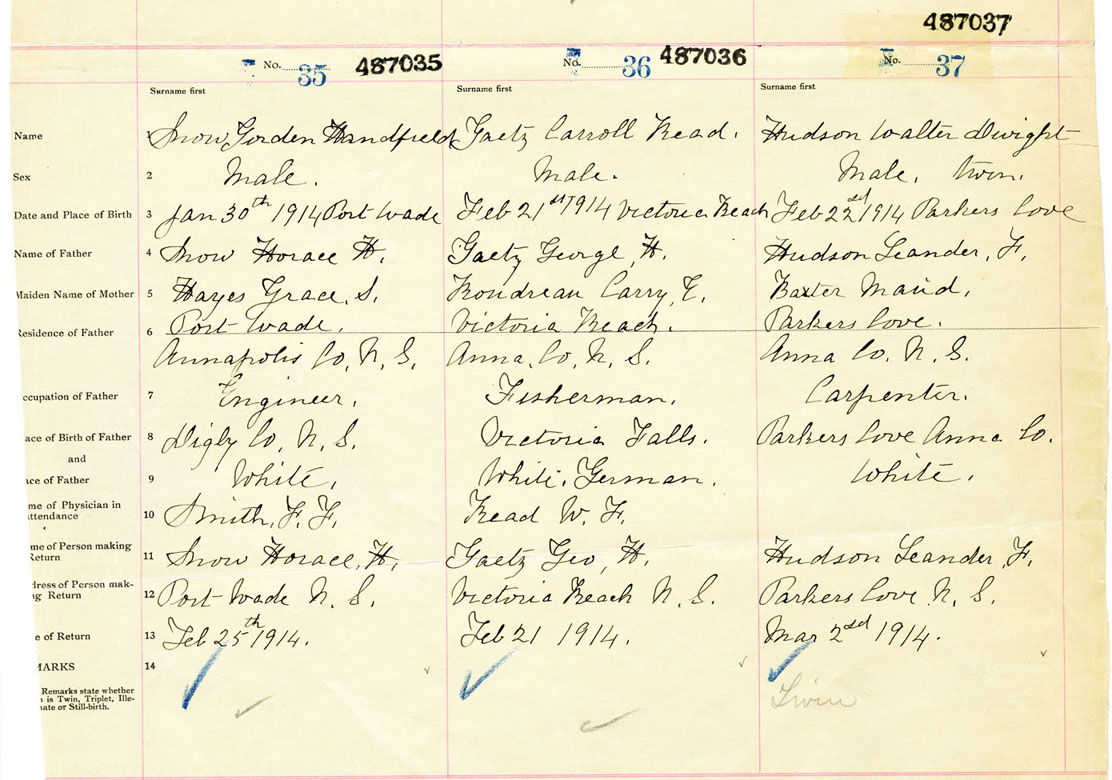 487037
No. 35 487035 No. 36 487036 No. 37
Surname first Surname first Surname first
Name 1 Snow Gorden Handfield Gaetz Carroll Read. Hudson Walter Dwight
Sex 2 Male. Male. Male, twin.
Date and Place of Birth 3 Jan 30th 1914 Port Wade Feb 21st 1914 Victoria Beach Feb 22nd 1914 Parkers Cove
Name of Father 4 Snow Horace H. Gaetz George, H. Hudson Leander, F,
Maiden Name of Mother 5 Hayes Grace, S. Boudreau Carry, E. Baxter Maud,
Residence of Father 6 Port Wade, Victoria Beach. Parkers Cove.
Annapolis Co, N. S, Anna, Co, N. S. Anna Co, N. S.
ccupation of Father 7 Engineer, Fisherman, Carpenter.
ace of Birth of Father 8 Digby Co, N, S. Victoria Falls. Parkers Cove Anna Co.
and
ace of Father 9 White, White, German. White,
me of Physician in
ttendance 10 Smith, F. F, Read W. F,
me of Person making
Return 11 Snow Horace, H, Gaetz Geo, H. Hudson Leander, F,
dress of Person mak-
ng Return 12 Port Wade N. S. Victoria Beach N. S. Parkers Cove N. S.
e of Return 13 Feb 25th 1914. Feb 21 1914. Mar 2nd 1914.
MARKS 14
Remarks state whether
is Twin, Triplet, Ille-
ate or Still-birth. Twin